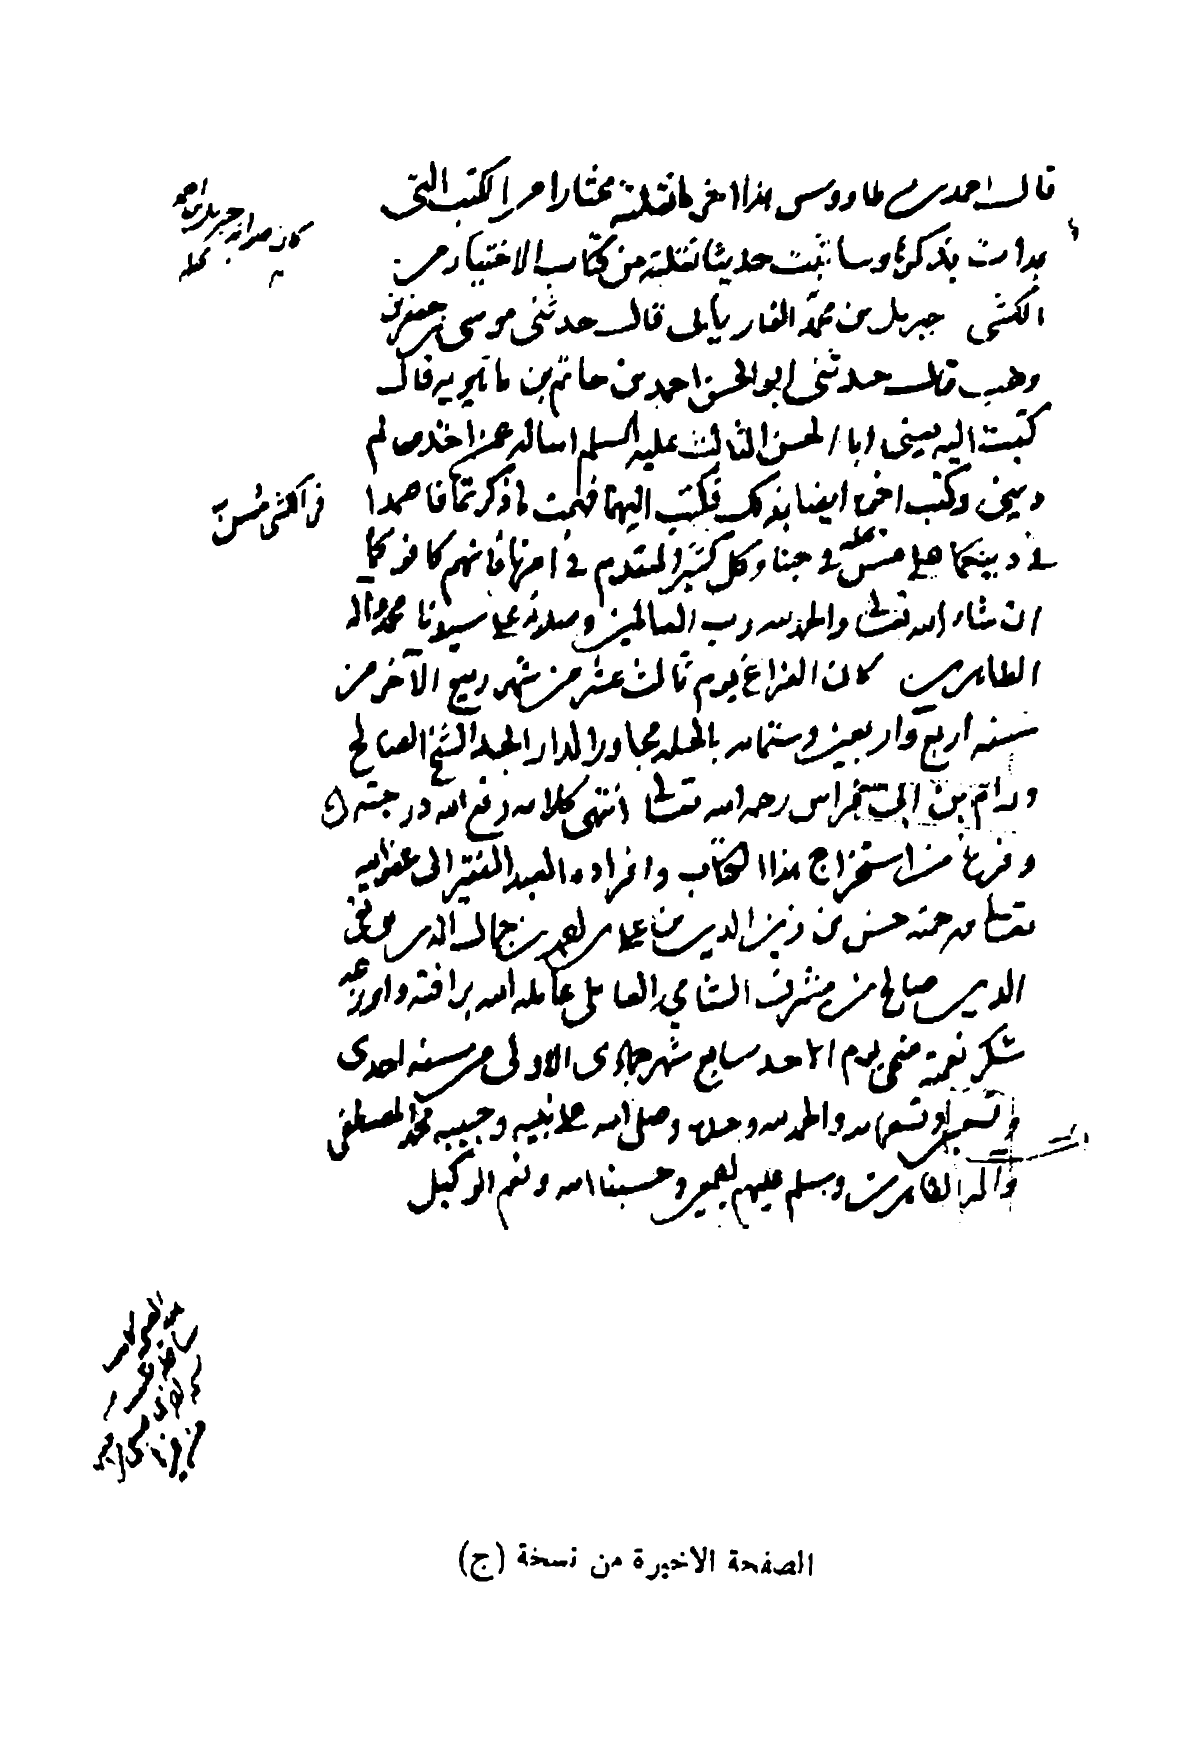 قال احمد بن طاووس هذا اخر ما نقلته مختارا من الكتب التى
بدات بذكرها وسا ثبت حديثا نقلته من كتاب الاختيار من
الكشى جبريل بن محمد الفاريابى قال حدثنى موسى بن جعفر بن
وهب قال حدثنى ابو الحسن احمد بن حاتم بن ماهويه قال
كتبت اليه يعنى ابا الحسن الثالث عليه السلم اساله عمن اخذ معالم
دينى وكتب اخوه ايضا بذلك فكتب اليهما فهمت ما ذكرتما فاصمدا
فى دينكما على مسن فى حبنا وكل كثير التقدم فى امرنا فانهم كافوكما
ان شاء الله تعالى والحمد لله رب العالمين وصلاته على سيدنا محمد واله
الطاهرين كان الفراغ يوم ثالث عشر من شهر ربيع الآخر من
سنه اربع واربعين وستمائه بالحله مجاورا لدار الجد الشيخ الصالح
ورام بن ابى فراس رحمه الله تعالى انتهى كلامه رفع الله درجته
وفرغ من استخراج هذا الكتاب وافراده العبد الفقير الى عفو الله
تعالى ورحمته حسن بن زين الدين بن على بن احمد بن جمال الدين بن تقى
الدين صالح بن مشرف الشامى العاملى عامله الله برافته واوزعه
شكر نعمته ضحى يوم الاحد سابع شهر جمادى الاولى من سنه احدى
وتسعين وتسعمائه والحمد لله وحده وصلى الله على نبيه وحبيبه محمد المصطفى
واله الطاهرين وسلم عليهم اجمعين وحسبنا الله ونعم الوكيل
كان صوابه جبريل بن احمد
فى الكشى مسن
الصفحة الاخيرة من نسخة (ج)